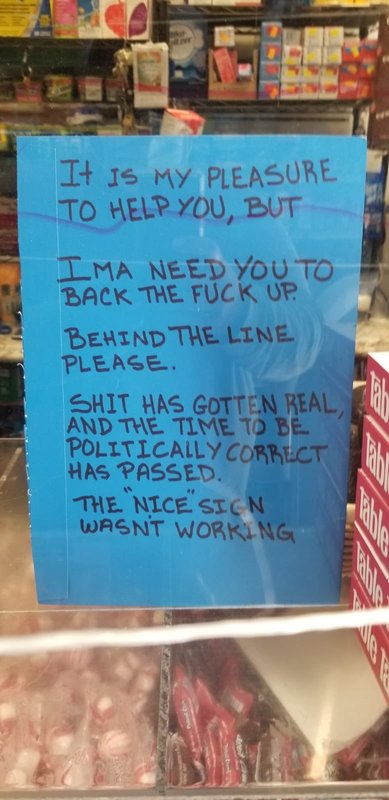 It IS MY PLEASURE
TO HELP YOU, BUT
IMA NEED YOU TO
BACK THE FUCK UP.
BEHIND THE LINE
PLEASE.
SHIT HAS GOTTEN REAL,
AND THE TIME TO BE
POLITICALLY CORRECT
HAS PASSED.
THE "NICE" SIGN
WASNT WORKING